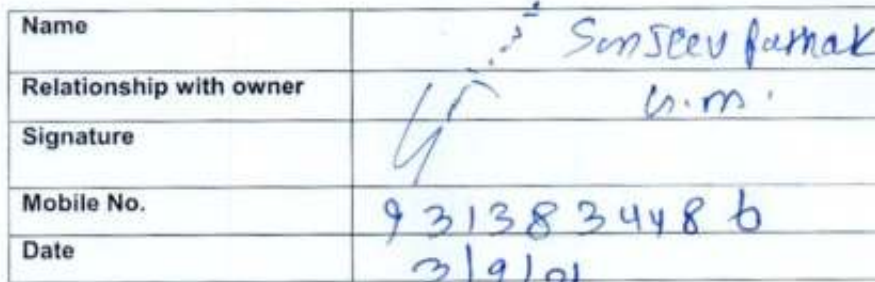 Name Sanjeev Pathak
Relationship with owner G.M.
Signature
Mobile No. 9313834486
Date 3/9/01